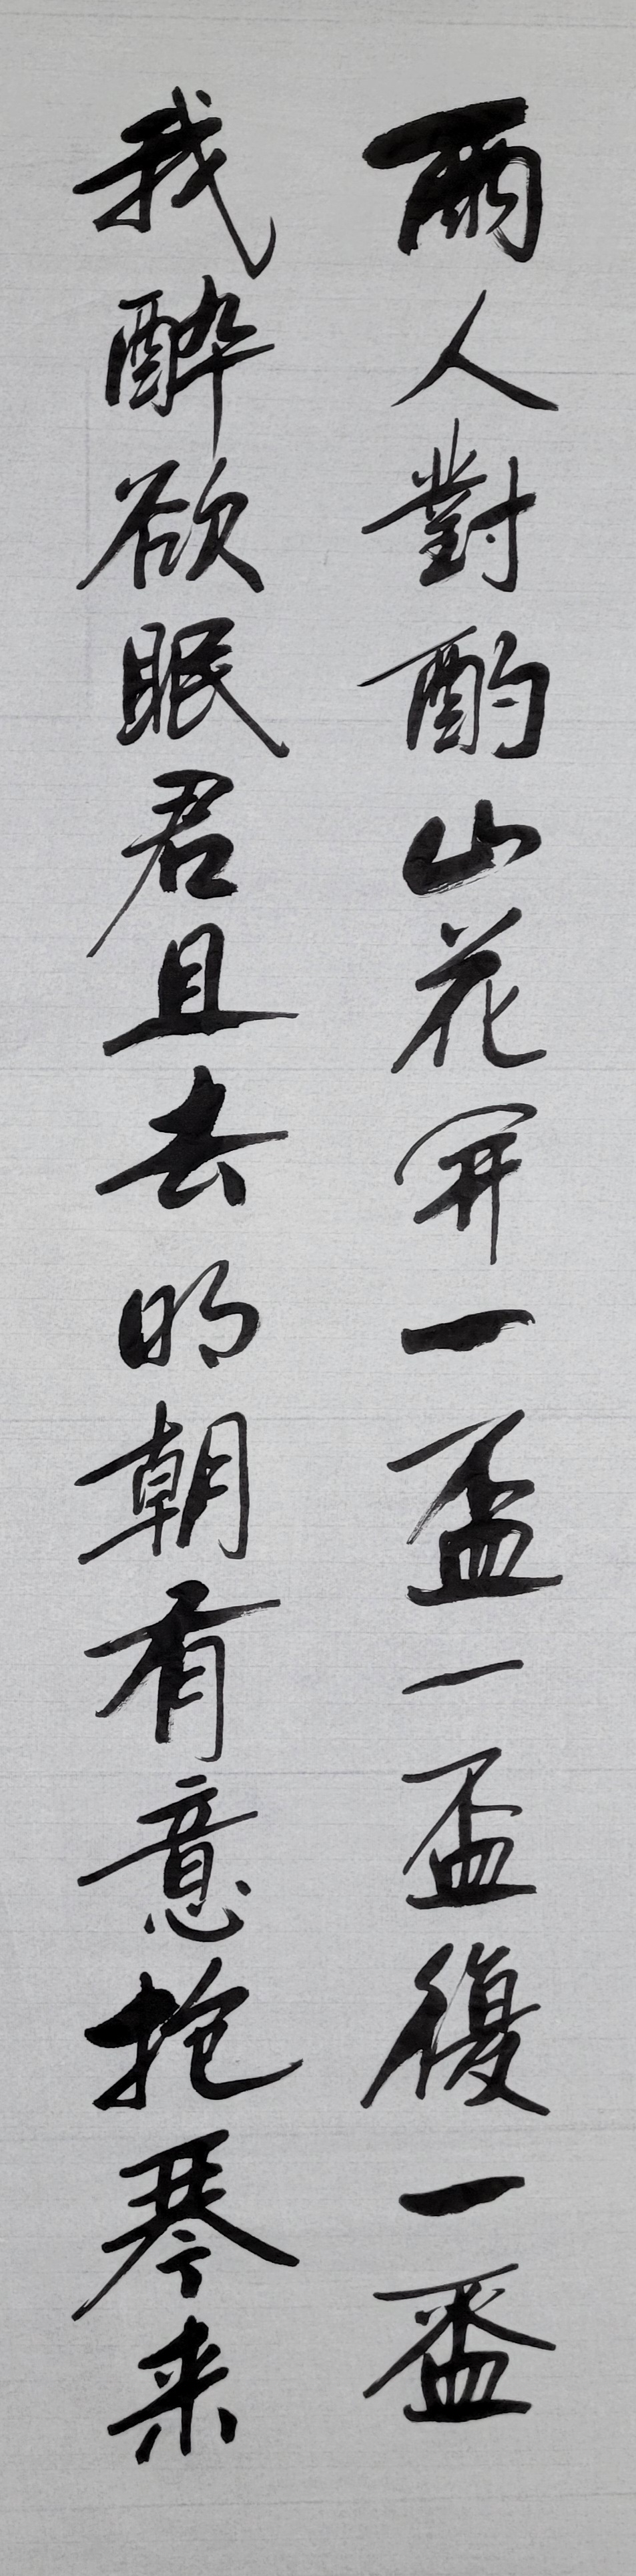 兩人對酌山花開一盃一盃復一盃
我醉欲眠君且去明朝有意抱琴来